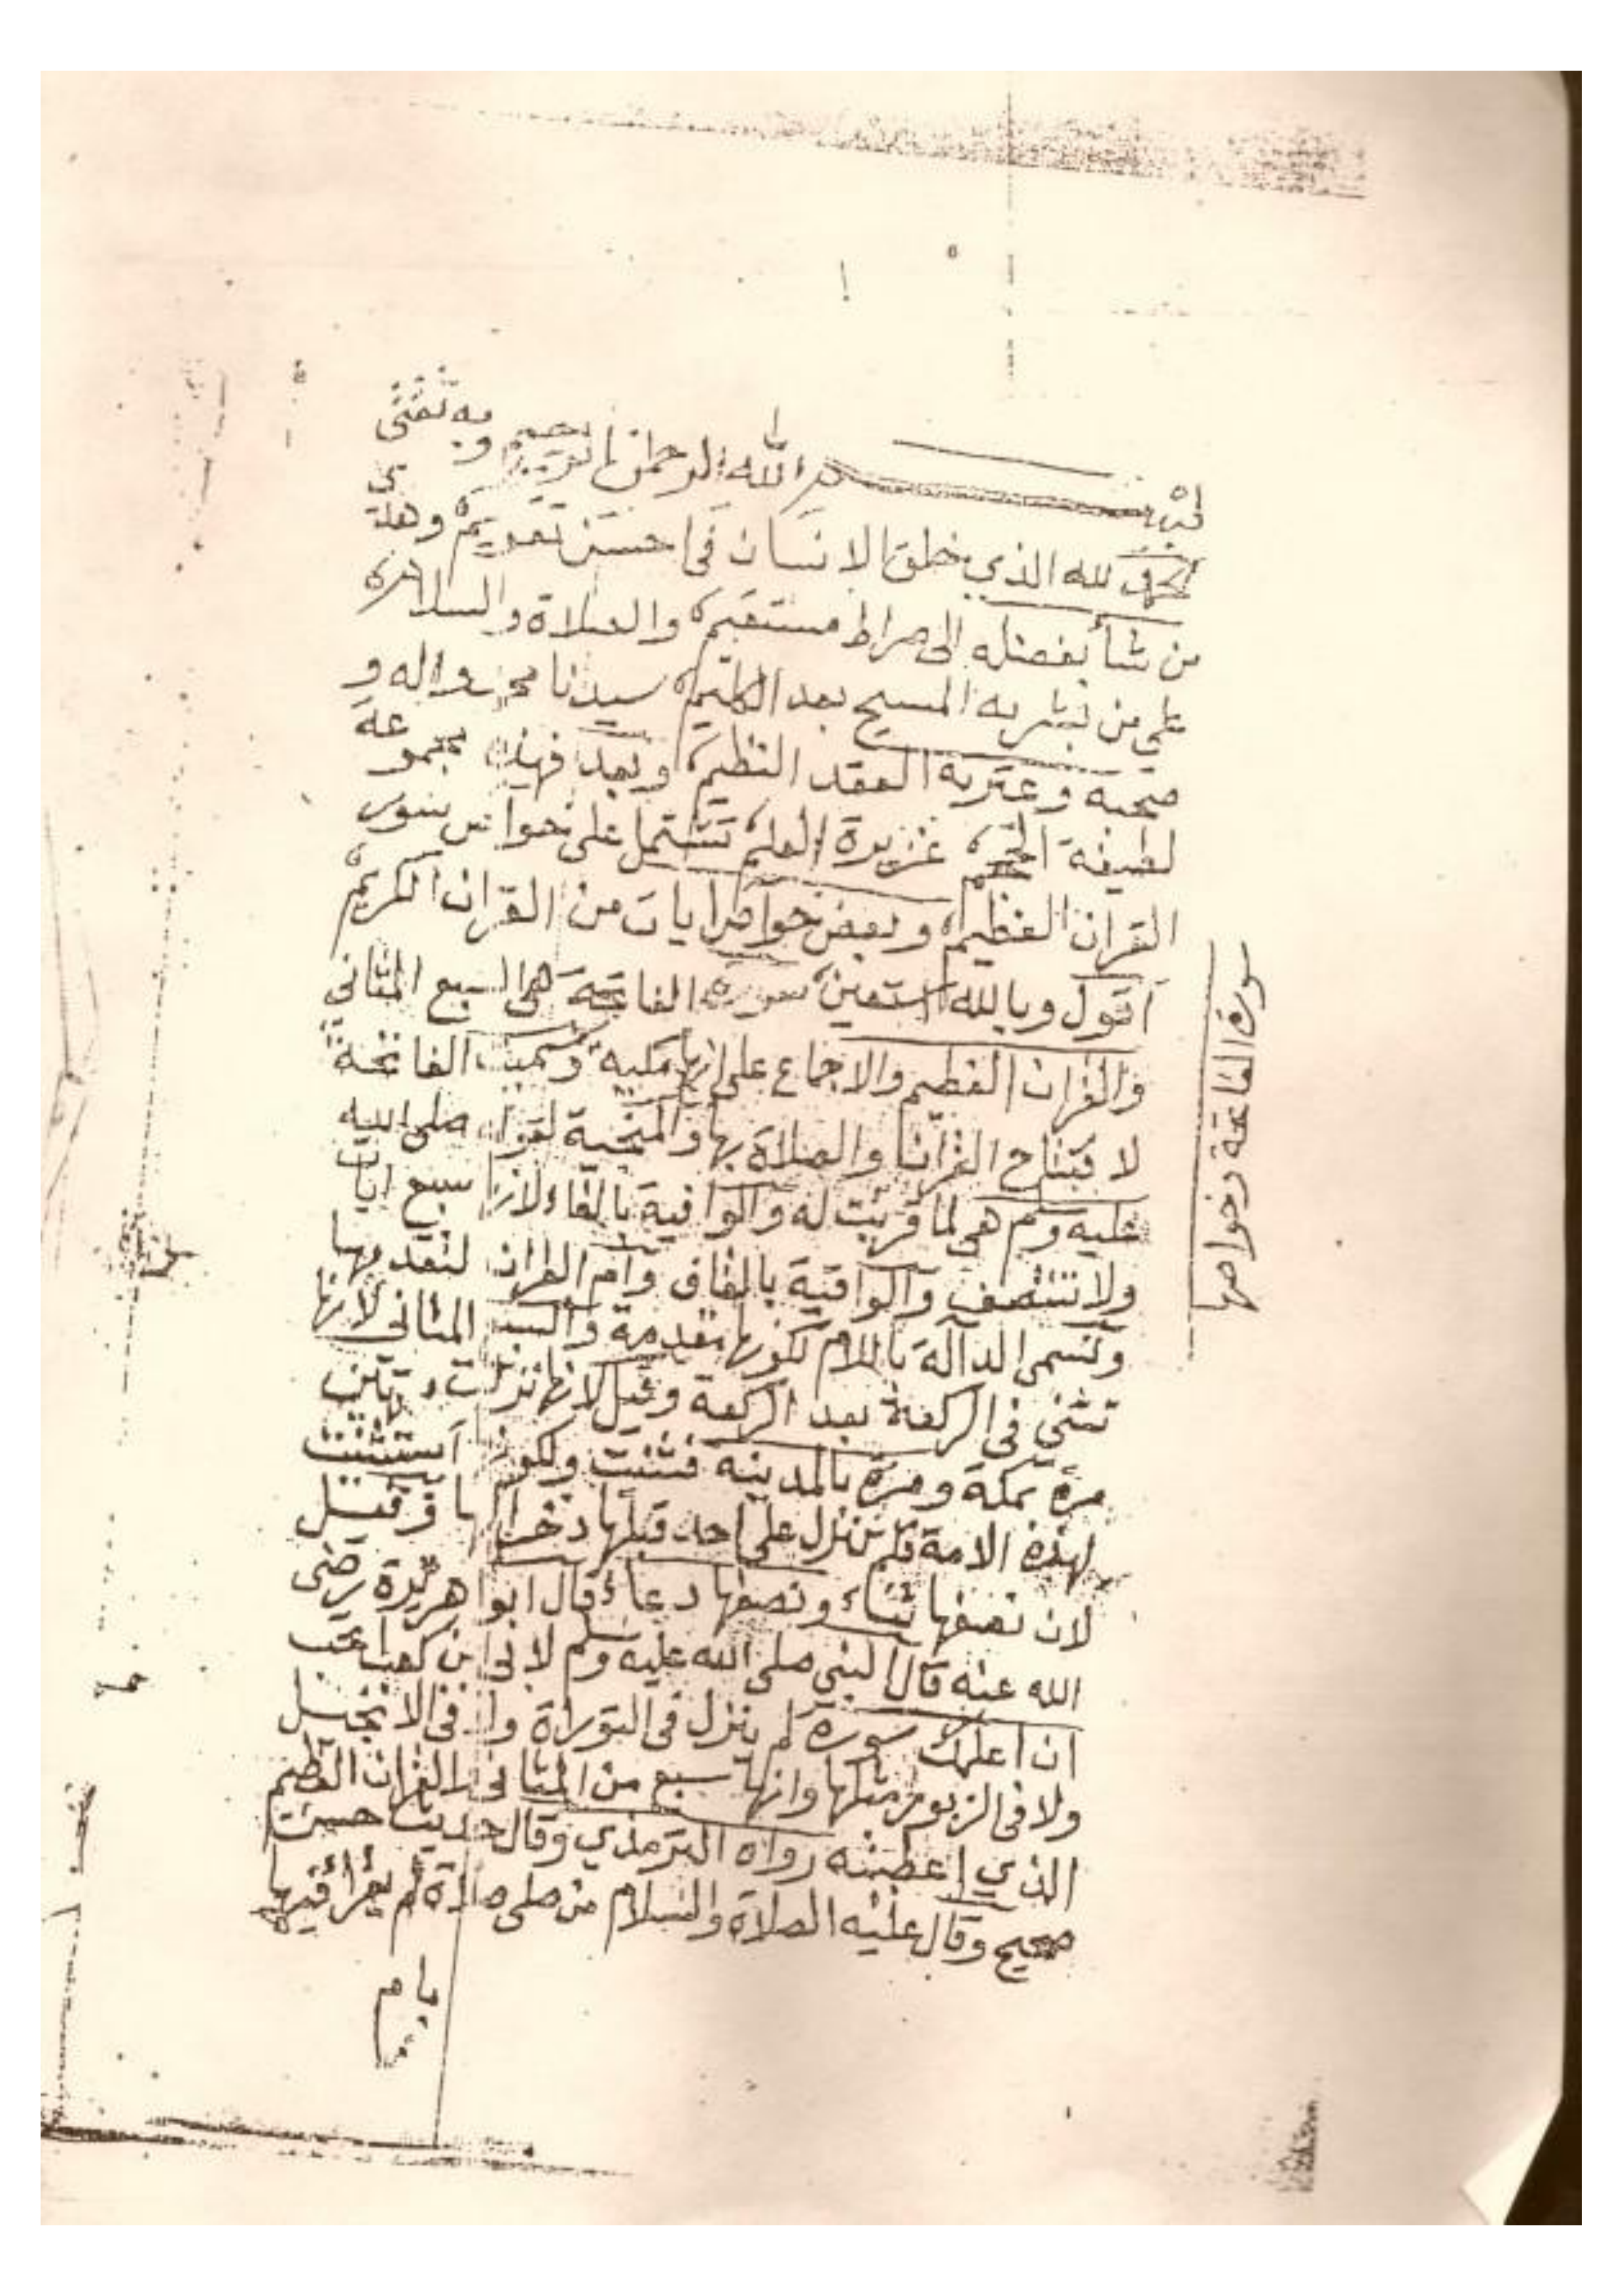 بسم الله الرحمن الرحيم وبه ثقتي
الحمد لله الذي خلق الانسان فى احسن تقويم وهدى
من شأ بفضله الى صراط مستقيم والصلاة والسلام
على من بشر به المسيح بعد الكليم سيدنا محمد واله و
صحبه وعترته العقد النظيم وبعد فهذه مجموعة
لطيفة الحجم غزيرة العلم تشتمل على خواص سور
القران العظيم وبعض خواص ايات من القران الكريم
اقول وبالله استعين سورة الفاتحة هى السبع المثاني
والقران العظيم والاجماع على انها مكية وسميت الفاتحة
لافتتاح القران والصلاة بها والمنجية لقوله صلى الله
عليه وسلم هي لما قرئت له والوافية بالفاء لانها سبع ايات
ولا تنتصف والواقية بالقاف وام القران لتقدمها
وتسمى الدالة باللام لكونها متقدمة والسبع المثاني لانها
تثنى فى الركعة بعد الركعة وقيل لانها نزلت مرتين
مرة بمكة ومرة بالمدينة فثنيت ولكونها استثنيت
لهذه الامة فلم تنزل على احد قبلها ذخرا لها وقيل
لان نصفها ثناء ونصفها دعاء قال ابوا هريرة رضى
الله عنه قال النبي صلى الله عليه وسلم لابي ابن كعب اتحب
ان اعلمك سورة لم ينزل فى التوراة ولا فى الانجيل
ولا فى الزبور مثلها وانها سبع من المثاني والقران العظيم
الذي اعطيته رواه الترمذي وقال حديث حسن
صحيح وقال عليه الصلاة والسلام من صلى صلاة لم يقرأ فيها
بام
سورة الفاتحة وخواصها